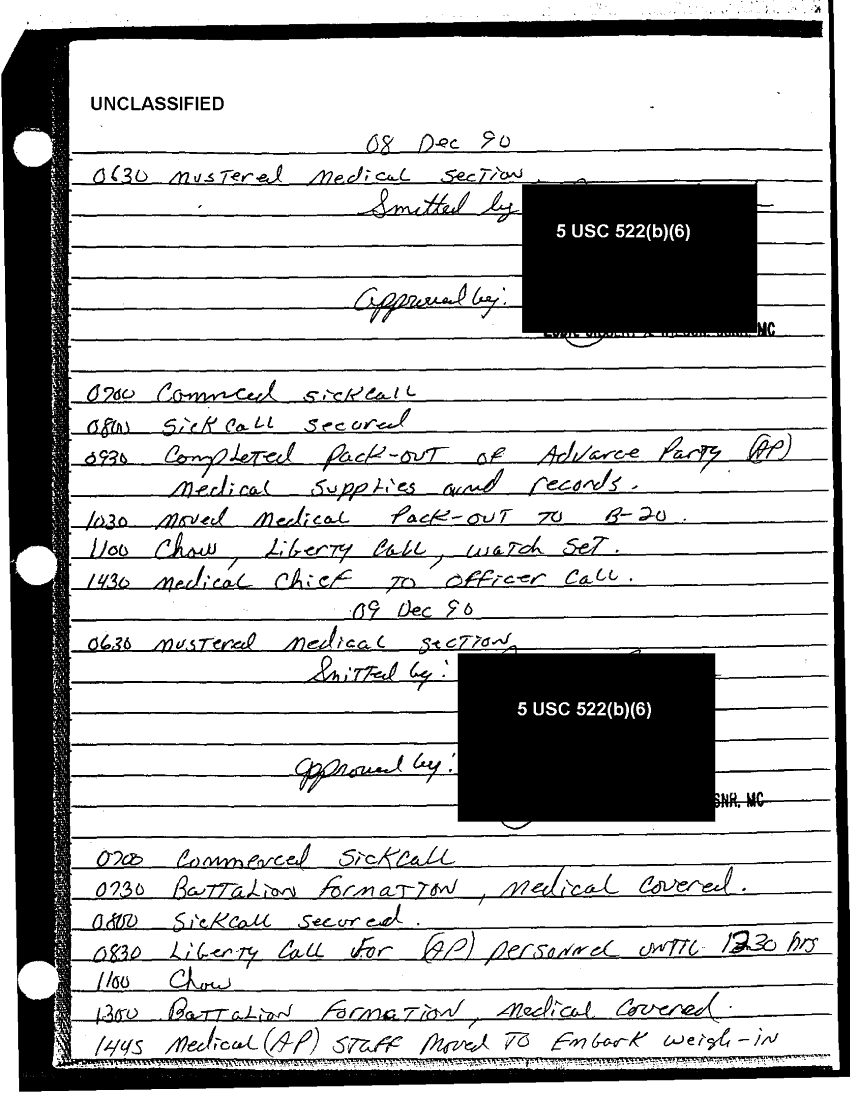 UNCLASSIFIED
08 Dec 90
0630 Mustered Medical section.
Smitted by
5 USC 522(b)(6)
Approved by:
MC
0700 Commced sickcall
0800 Sick Call secured
0930 Completed Pack-out of Advance Party (AP)
Medical Supplies and records.
1030 Moved Medical Pack-out to B-20.
1100 Chow, Liberty Call, watch set.
1430 Medical Chief to Officer Call.
09 Dec 90
0630 Mustered Medical section
Smitted by:
5 USC 522(b)(6)
Approved by:
SNR, MC
0700 Commenced SickCall
0730 Battalion Formation, Medical Covered.
0800 Sickcall secured.
0830 Liberty Call for (AP) personnel until 1230 hrs
1100 Chow
1300 Battalion Formation, Medical Covered.
1445 Medical (AP) Staff Moved to Embark weigh-in